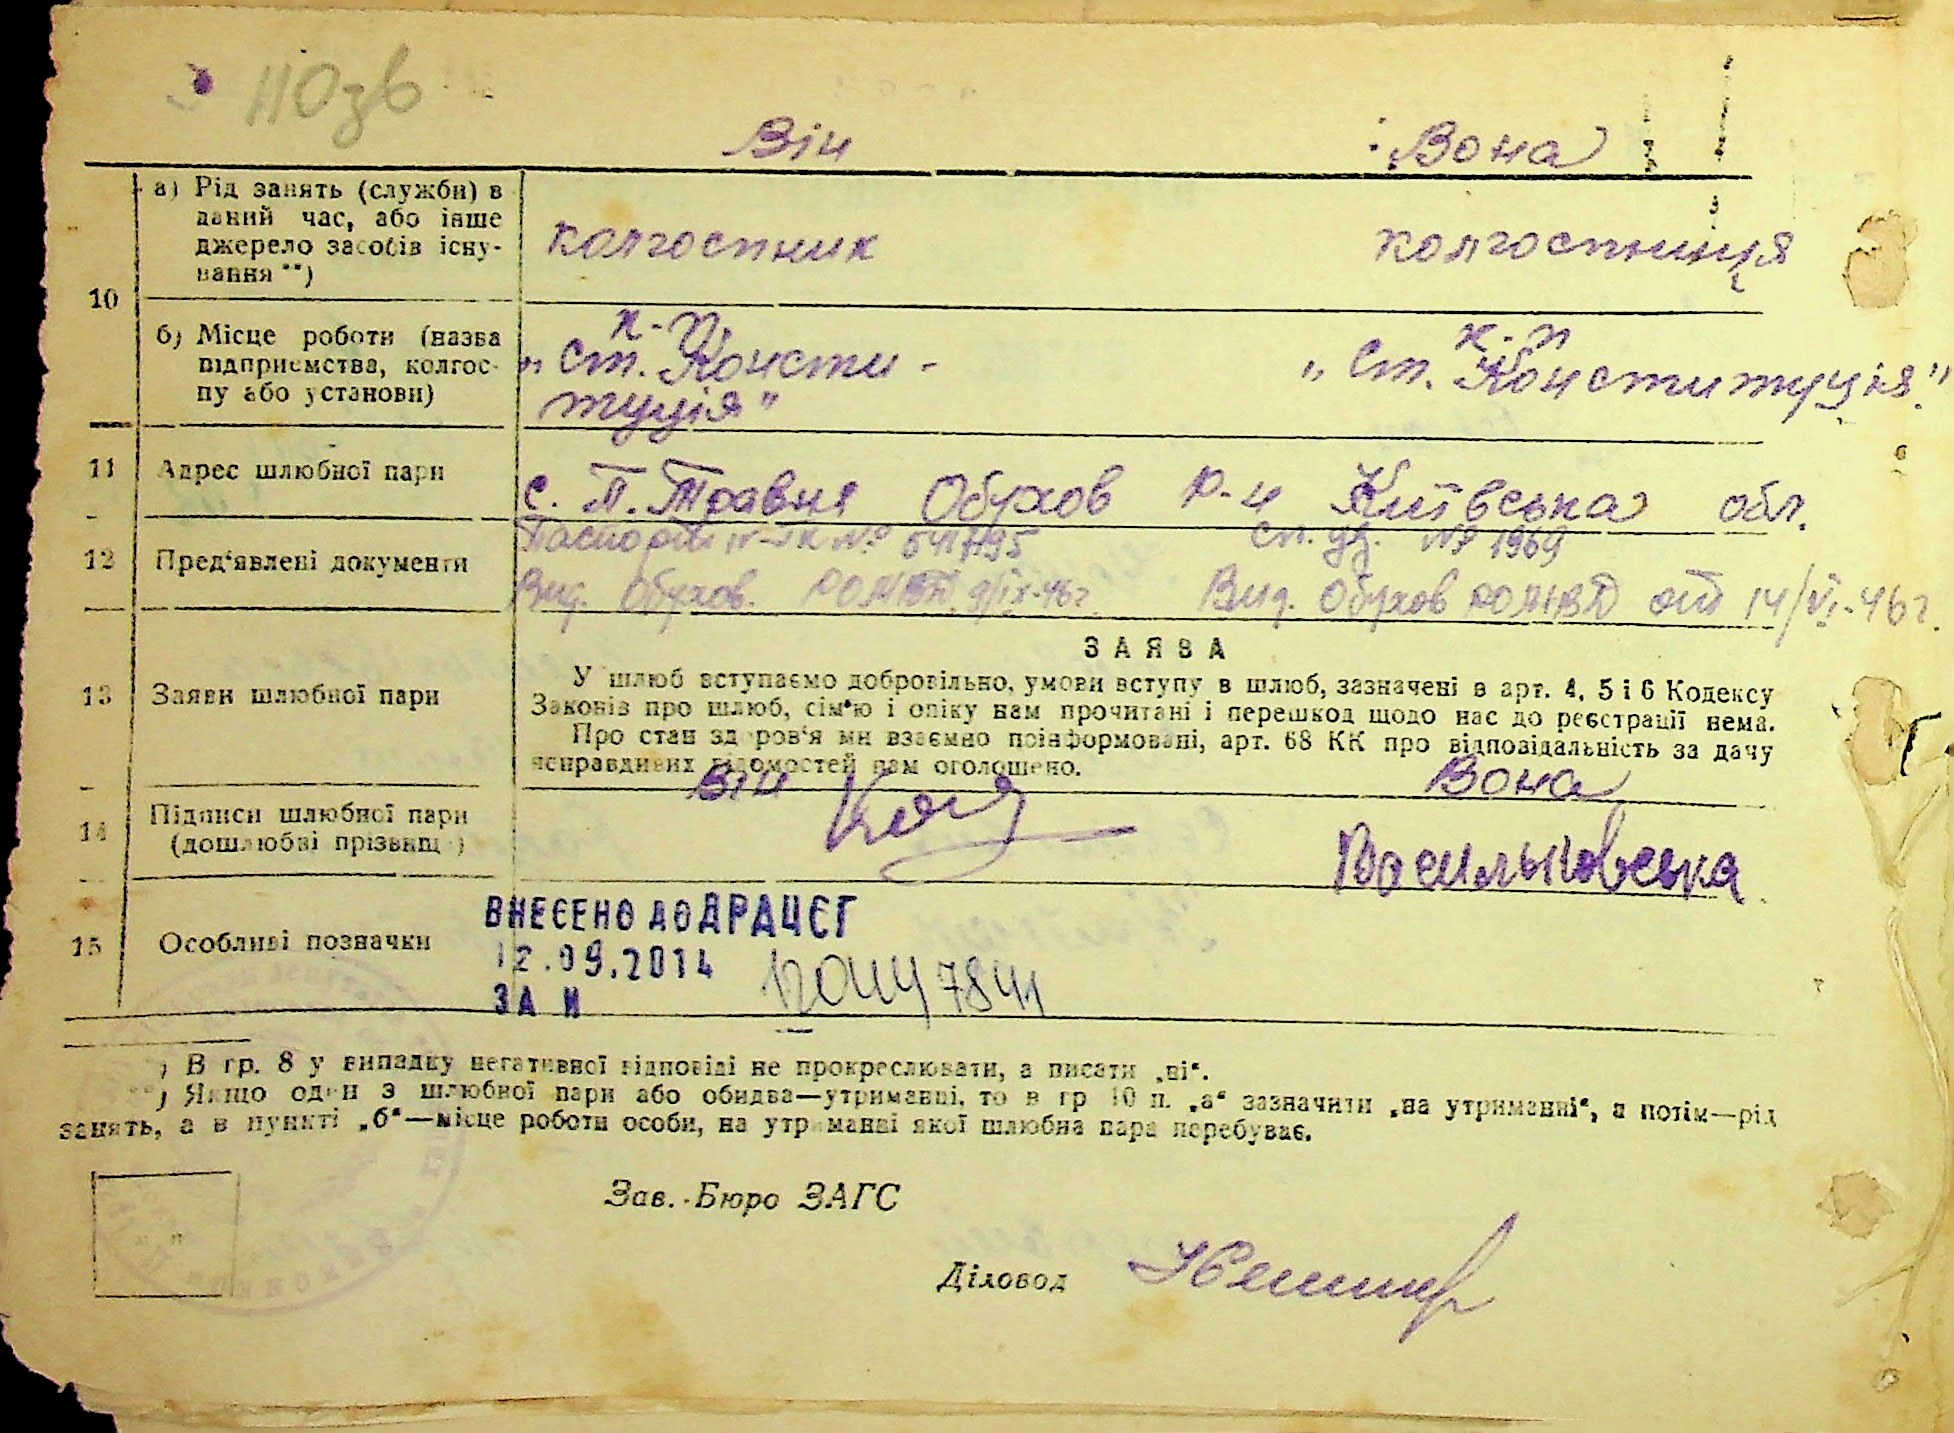 110 зв
Він Вона
10
а) Рід занять (служби) в
даний час, або інше
джерело засобів існу-
вання **)
колгоспник колгоспниця
б) Місце роботи (назва
підприємства, колгос-
пу або установи)
к-п к-п
„Ст. Консти- „Ст. Конституція"
туція"
11 Адрес шлюбної пари
с. П. Травня Обухов р-н Київська обл.
12 Пред'явлені документи
Паспорт № Сп. уд. № 1969
Вид. Обухов. РОМВД 9/IX-46г. Вид. Обухов РОМВД от 14/VI-46г.
13 Заяви шлюбної пари
ЗАЯВА
У шлюб вступаємо добровільно, умови вступу в шлюб, зазначені в арт. 4, 5 і 6 Кодексу
Законів про шлюб, сім'ю і опіку нам прочитані і перешкод щодо нас до реєстрації нема.
Про стан здоров'я ми взаємно поінформовані, арт. 68 КК про відповідальність за дачу
неправдивих відомостей нам оголошено.
Він Вона
14 Підписи шлюбної пари
(дошлюбні прізвища)
Васильковська
15 Особливі позначки
ВНЕСЕНО ДО ДРАЦСГ
12.09.2014
ЗА N 7841
*) В гр. 8 у випадку негативної відповіді не прокреслювати, а писати „ні".
**) Якщо один з шлюбної пари або обидва—утриманці, то в гр 10 п. „а" зазначити „на утриманні", а потім—рід
занять, а в пункті „б"—місце роботи особи, на утриманні якої шлюбна пара перебуває.
Зав. Бюро ЗАГС
Діловод